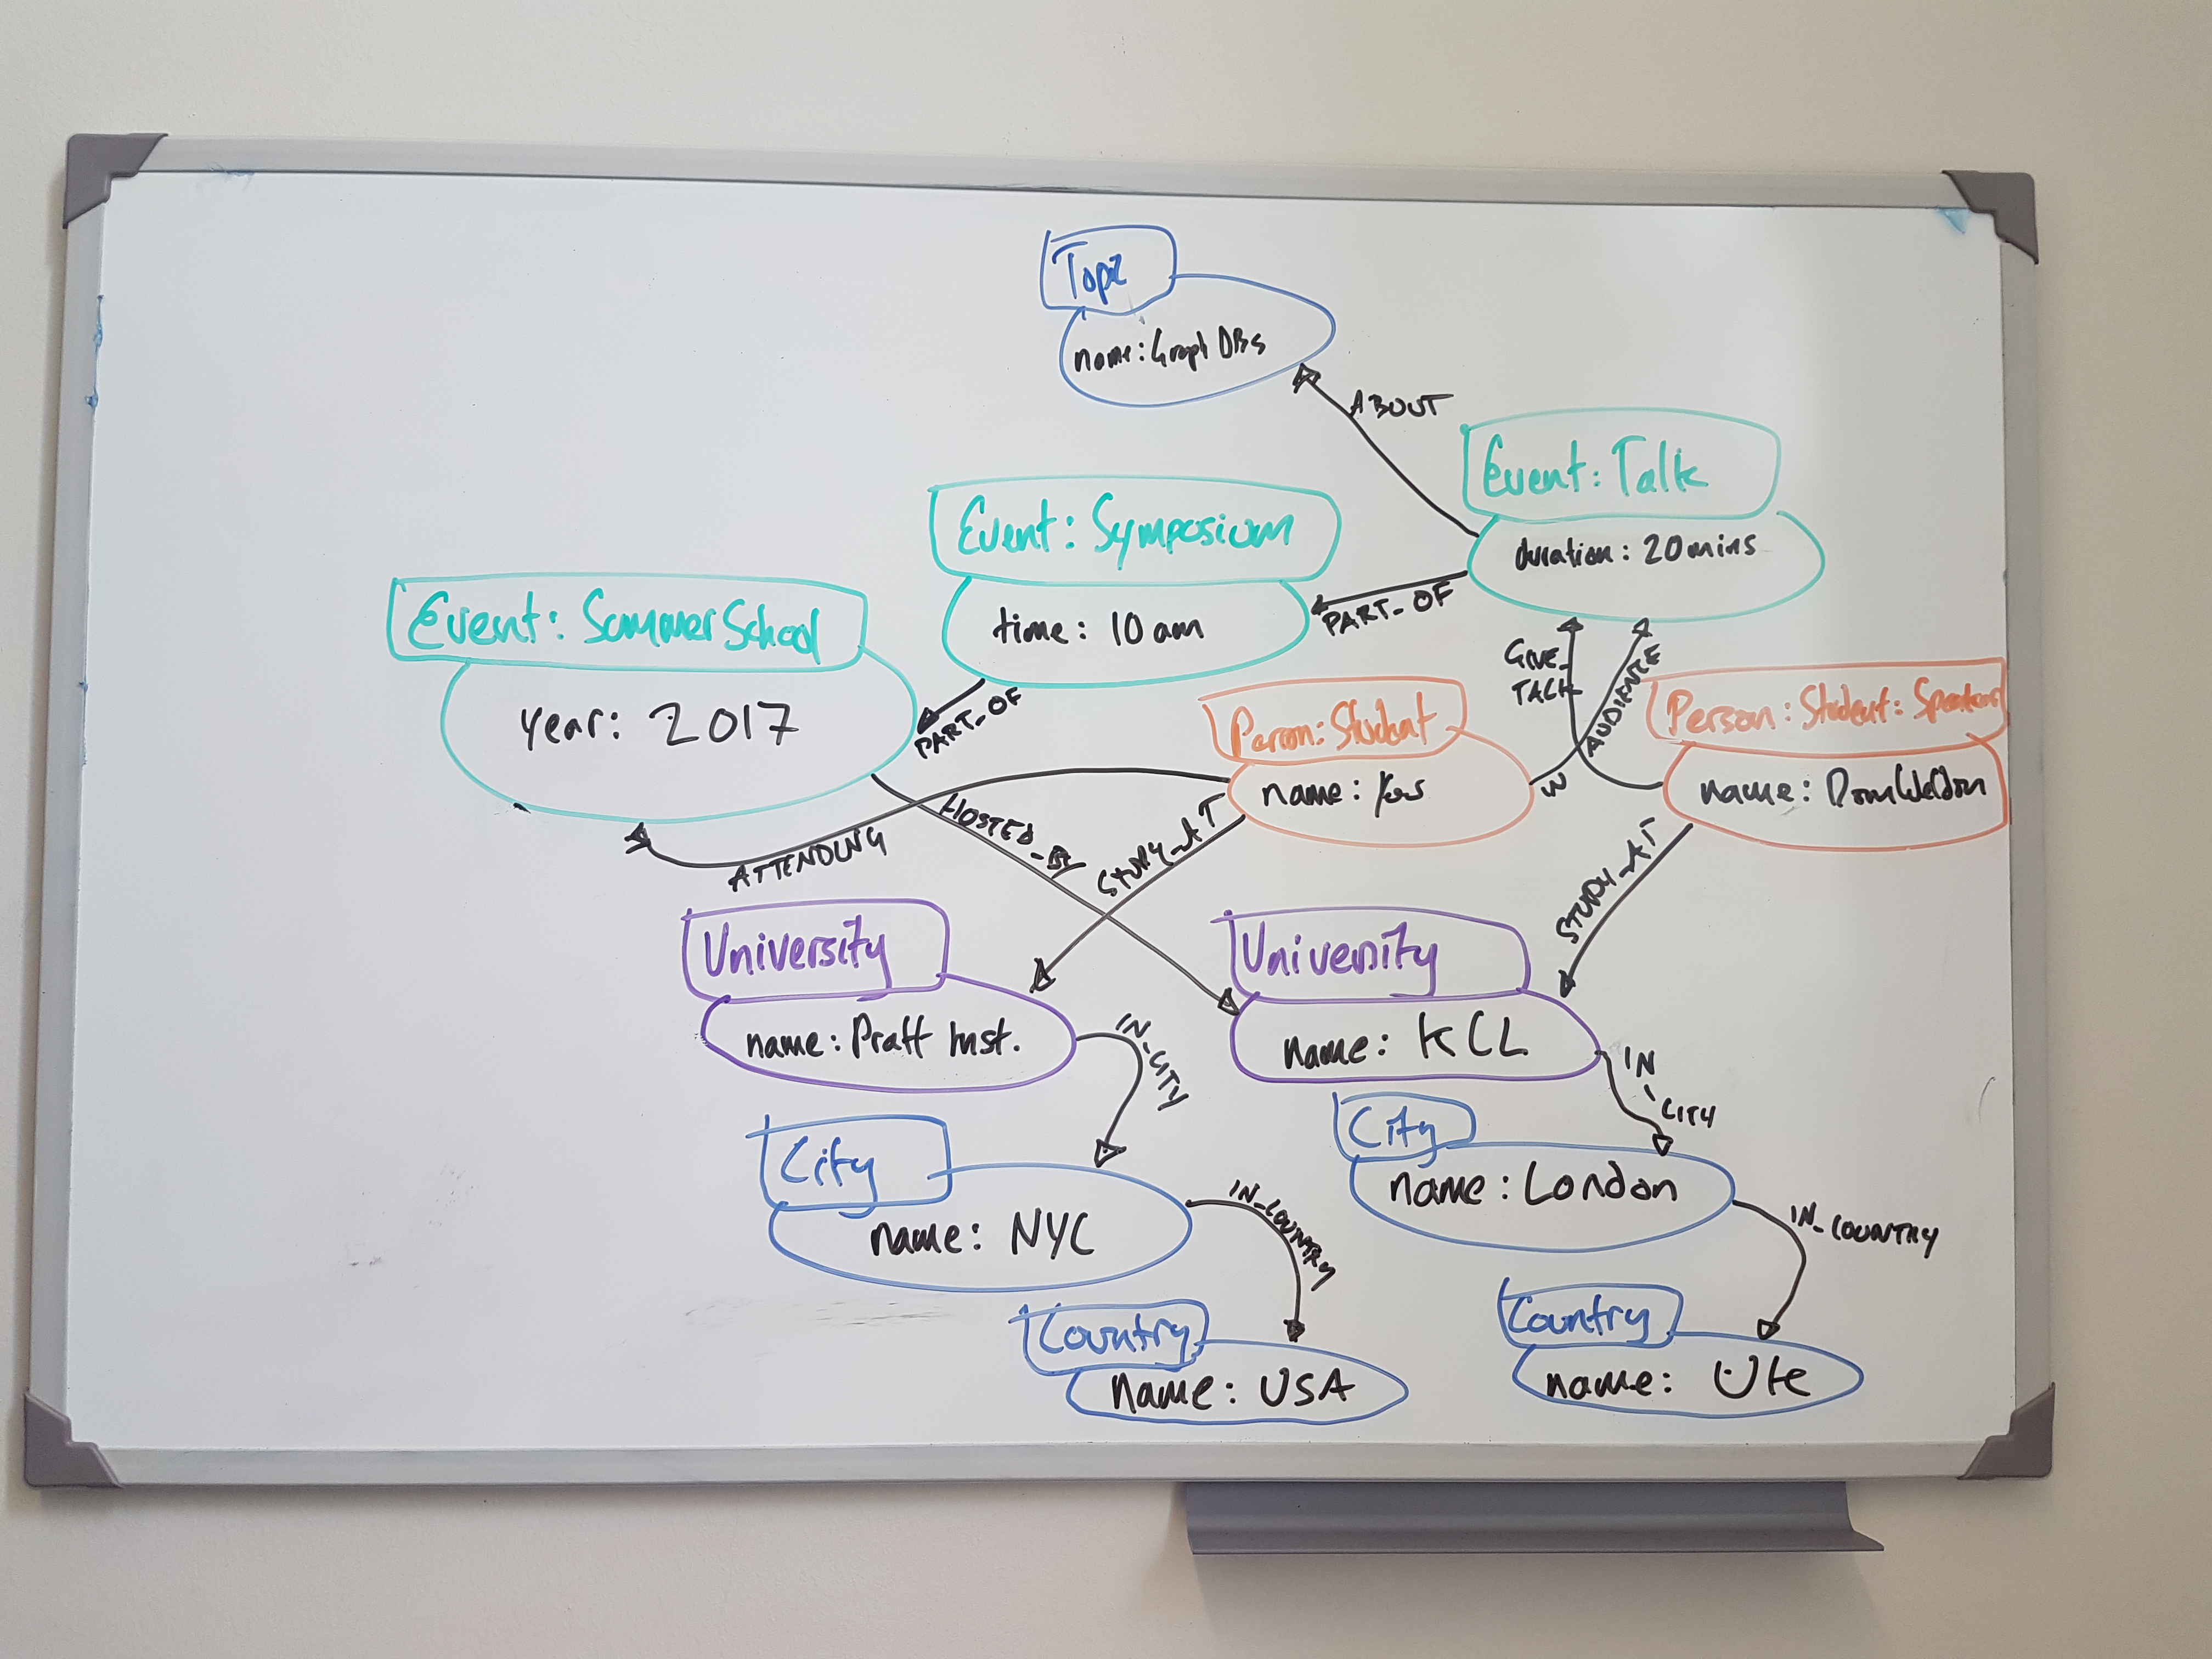 Topic
name: Graph DBs
ABOUT
Event: Talk
duration: 20 mins
Event: Symposium
time: 10 am
PART_OF
Event: Summer School
year: 2017
PART_OF
GIVE_
TALK
IN AUDIENCE
Person: Student
name:
Person: Student: Speaker
name: Dom Weldon
ATTENDING
HOSTED_BY
STUDY_AT
STUDY_AT
University
name: Pratt Inst.
University
name: KCL
IN_CITY
IN
_CITY
City
name: NYC
City
name: London
IN_COUNTRY
IN_COUNTRY
Country
name: USA
Country
name: UK